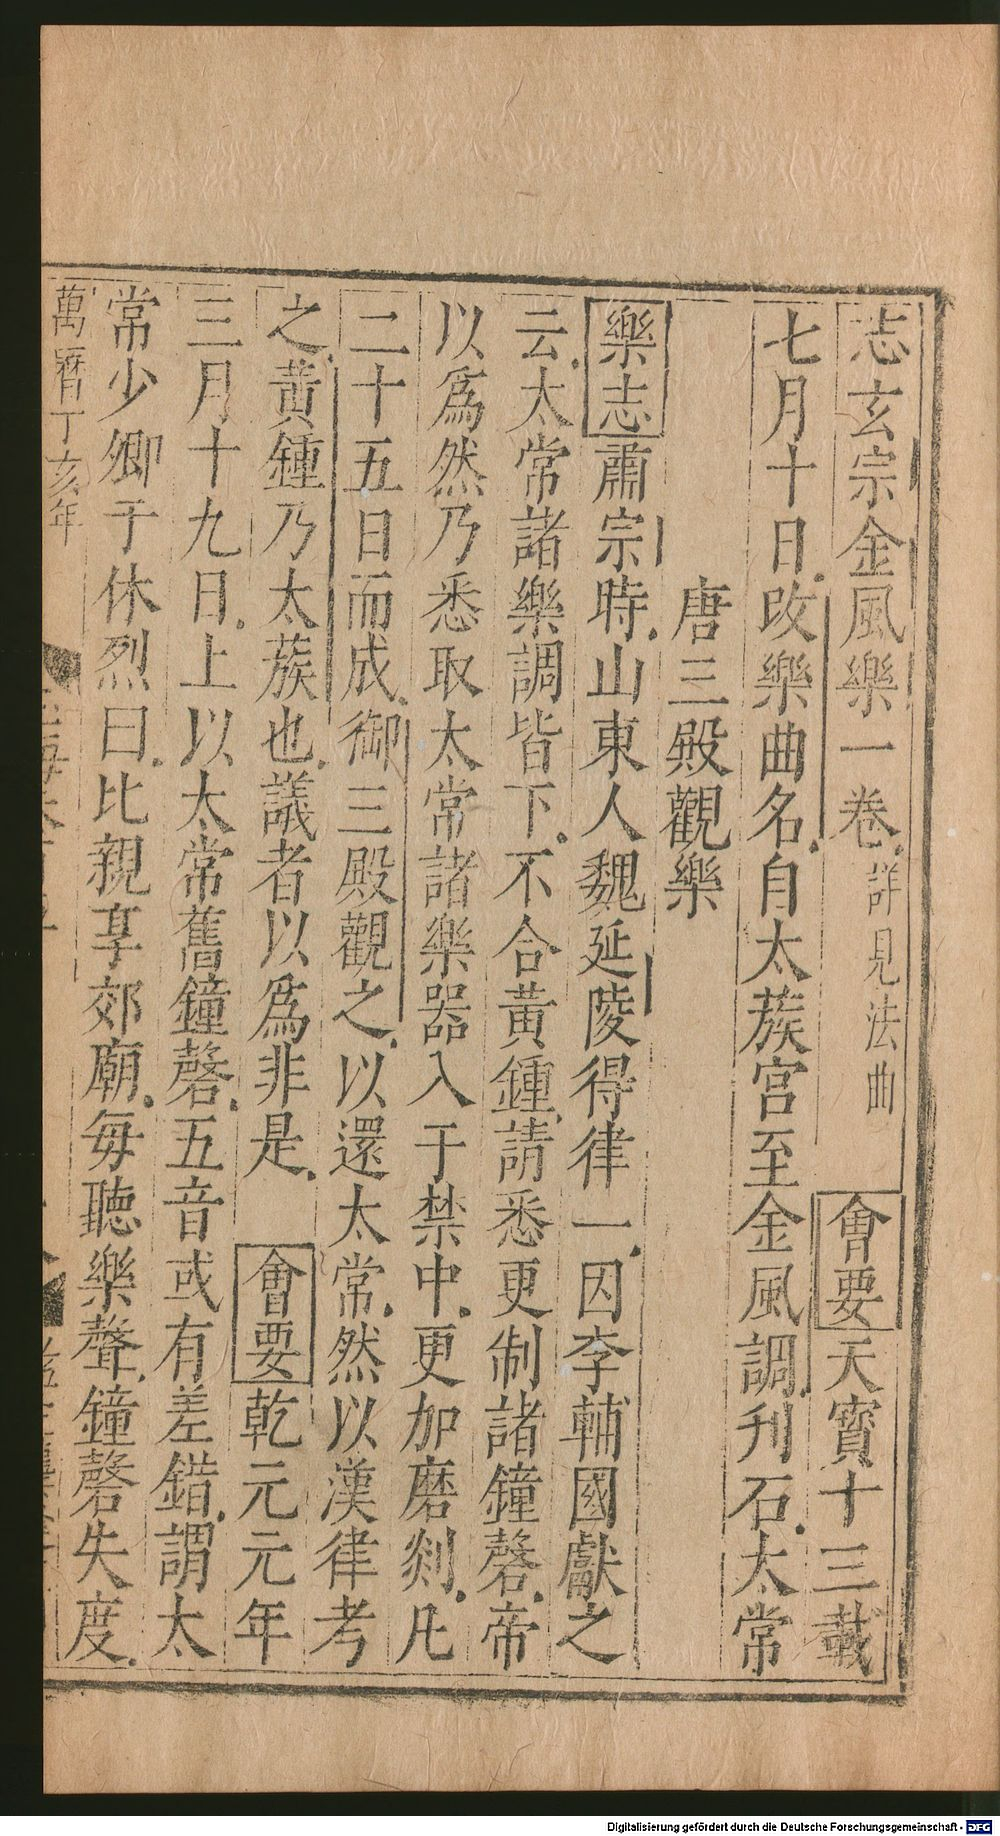 志玄宗金風樂一卷詳見法曲 會要天寶十三載
七月十日改樂曲名自太蔟宮至金風調刋石太常
唐三殿觀樂
樂志肅宗時山東人魏延陵得律一因李輔國獻之
云太常諸樂調皆下不合黃鍾請悉更制諸鐘磬帝
以爲然乃悉取太常諸樂器入于禁中更加磨剡凡
二十五日而成御三殿觀之以還太常然以漢律考
之黃鍾乃太蔟也議者以爲非是 會要乾元元年
三月十九日上以太常舊鐘磬五音或有差錯謂太
常少卿于休烈曰比親享郊廟每聽樂聲鐘磬失度
萬曆丁亥年
Digitalisierung gefördert durch die Deutsche Forschungsgemeinschaft - DFG